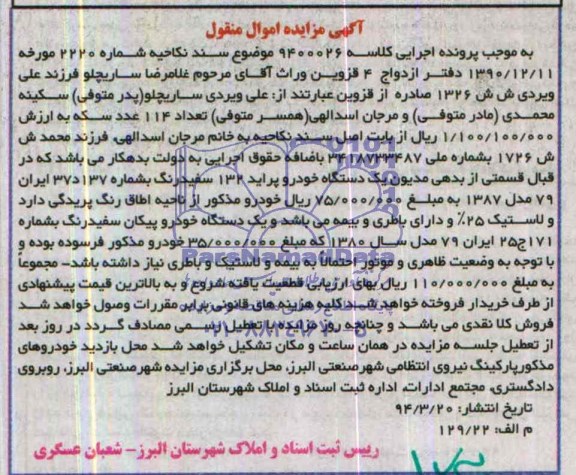 آگهی مزایده اموال منقول
به موجب پرونده اجرایی کلاسه ۹۴۰۰۰۲۶ موضوع سند نکاحیه شماره ۲۲۲۰ مورخه
۱۳۹۰/۱۲/۱۱ دفتر ازدواج ۴ قزوین وراث آقای مرحوم غلامرضا ساریچلو فرزند علی
ویردی ش ش ۱۳۲۶ صادره از قزوین عبارتند از: علی ویردی ساریچلو(پدر متوفی) سکینه
محمدی (مادر متوفی) و مرجان اسدالهی(همسر متوفی) تعداد ۱۱۴ عدد سکه به ارزش
۱/۱۰۰/۱۰۰/۰۰۰ ریال از بابت اصل سند نکاحیه به خانم مرجان اسدالهی، فرزند محمد ش
ش ۱۷۲۶ بشماره ملی ۳۴۱۸۷۳۳۴۸۷ باضافه حقوق اجرایی به دولت بدهکار می باشد که در
قبال قسمتی از بدهی مدیون یک دستگاه خودرو پراید ۱۳۲ سفیدرنگ بشماره ۱۳۷د۳۷ ایران
۷۹ مدل ۱۳۸۷ به مبلغ ۷۵/۰۰۰/۰۰۰ ریال خودرو مذکور از ناحیه اطاق رنگ پریدگی دارد
و لاستیک ۲۵٪ و دارای باطری و بیمه می باشد و یک دستگاه خودرو پیکان سفیدرنگ بشماره
۱۷۱ج۲۵ ایران ۷۹ مدل سال ۱۳۸۰ که مبلغ ۳۵/۰۰۰/۰۰۰ خودرو مذکور فرسوده بوده و
با توجه به وضعیت ظاهری و موتور احتمالا به بیمه و لاستیک و باطری نیاز داشته باشد- مجموعاً
به مبلغ ۱۱۰/۰۰۰/۰۰۰ ریال بهای ارزیابی قطعیت یافته شروع و به بالاترین قیمت پیشنهادی
از طرف خریدار فروخته خواهد شد کلیه هزینه های قانونی برابر مقررات وصول خواهد شد
فروش کلا نقدی می باشد و چنانچه روز مزایده با تعطیل رسمی مصادف گردد در روز بعد
از تعطیل جلسه مزایده در همان ساعت و مکان تشکیل خواهد شد محل بازدید خودروهای
مذکورپارکینگ نیروی انتظامی شهرصنعتی البرز، محل برگزاری مزایده شهرصنعتی البرز، روبروی
دادگستری، مجتمع ادارات، اداره ثبت اسناد و املاک شهرستان البرز
تاریخ انتشار: ۹۴/۳/۲۰
م الف: ۱۲۹/۲۲
رییس ثبت اسناد و املاک شهرستان البرز- شعبان عسگری
ParsNamadData